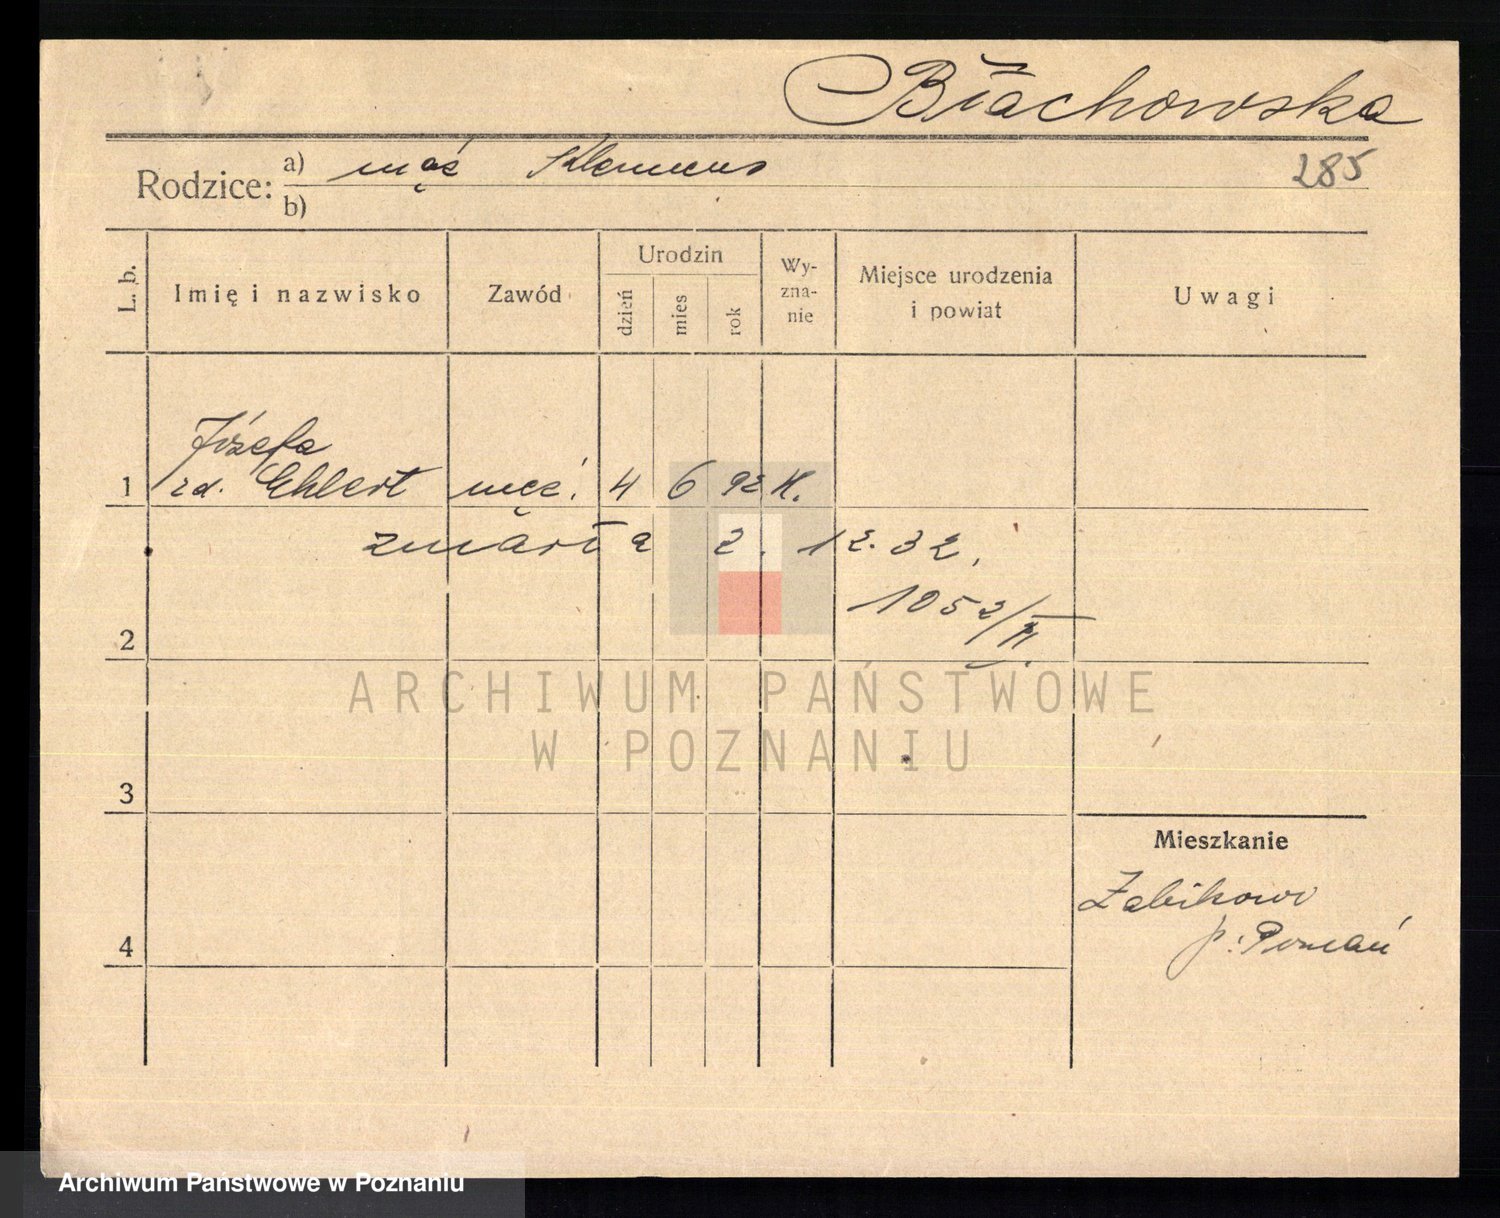 Błachowska
Rodzice: a) mąż Klemens
285
b)
L. b.
Imię i nazwisko
Zawód
Urodzin
dzień
mies
rok
Wy-
zna-
nie
Miejsce urodzenia
i powiat
Uwagi
Józefa
1 zd. Ehlert męż. 4 6 92 K.
zmarła 2. 12. 32.
1052/II.
2
ARCHIWUM PAŃSTWOWE
W POZNANIU
3
Mieszkanie
Żabikowo
p. Poznań
4
Archiwum Państwowe w Poznaniu